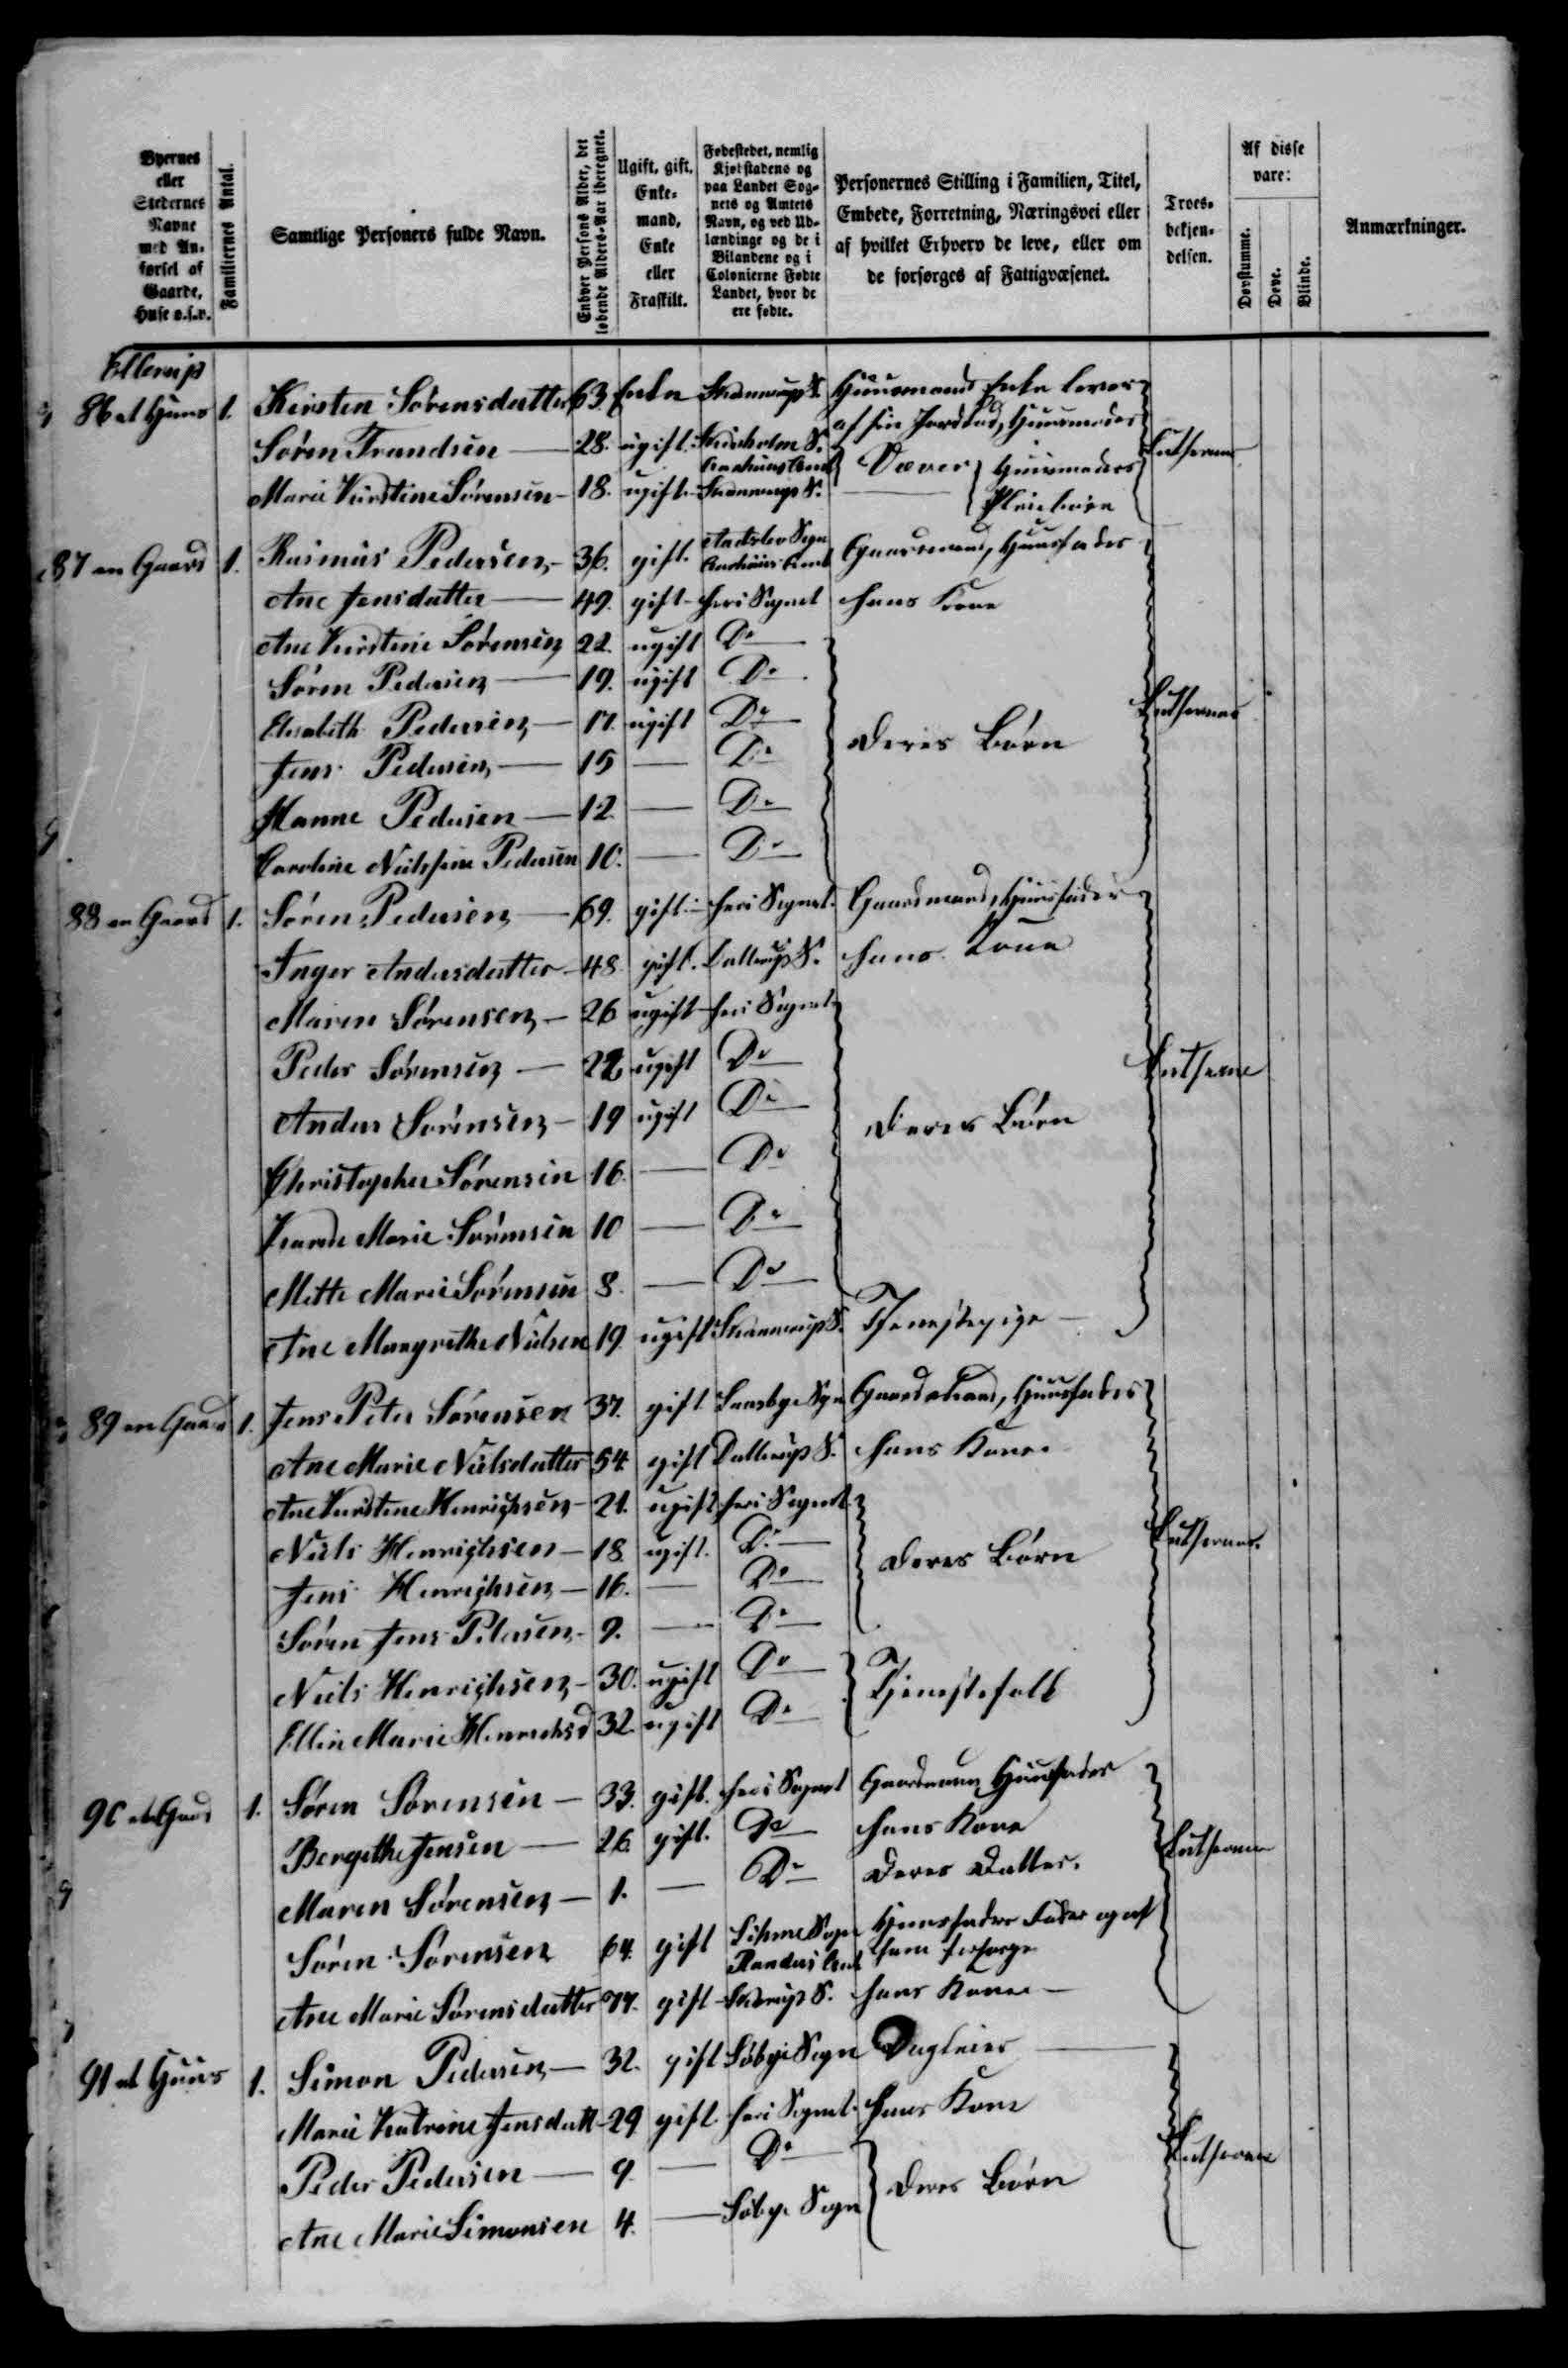 Byernes eller Stedernes Navne med Anførsel af Gaarde, Huse o.s.v.
Familiernes Antal.
Samtlige Personers fulde Navn.
Enhver Persons Alder, det løbende Alders-Aar iberegnet.
Ugift, gift, Enkemand, Enke eller Fraskilt.
Fødestedet, nemlig Kjøbstadens og paa Landet Sognets og Amtets Navn, og ved Udlændinge og de i Bilandene og i Colonierne Fødte Landet, hvor de ere fødte.
Personernes Stilling i Familien, Titel, Embede, Forretning, Næringsvei eller af hvilket Erhverv de leve, eller om de forsørges af Fattigvæsenet.
Troesbekjendelsen.
Af disse vare:
Døvstumme.
Døve.
Blinde.
Anmærkninger.
Ellerup
86 et Huus 1. Kirsten Sørensdatter 63. Enke Skannerup S. Huusmands Enke lever
af sin Jordlod, Huusmoder
Søren Frandsen 28. ugift. S. Væver Huusmoders Lutheraner
Marie Kirstine Sørensen 18. ugift Skannerup S. Pleiebørn
87 en Gaard 1. Rasmus Pedersen 36. gift. Sogn Gaardmand, Huusfader
Ane Jensdatter 49. gift heri Sognet hans Kone
Ane Kirstine Sørensen 22. ugift Do
Søren Pedersen 19. ugift Do
Elisabeth Pedersen 17. ugift Do Lutheraner
Jens Pedersen 15 — Do deres Børn
Hanne Pedersen 12. — Do
Caroline Nielsine Pedersen 10. — Do
88 en Gaard 1. Søren Pedersen 69. gift heri Sognet. Gaardmand, Huusfader
Inger Andersdatter 48. gift. Dallerup S. hans Kone
Maren Sørensen 26 ugift heri Sognet
Peder Sørensen 22 ugift Do Lutheraner
Anders Sørensen 19 ugift Do deres Børn
Christopher Sørensen 16. — Do
Karen Marie Sørensen 10 — Do
Mette Marie Sørensen 8. — Do
Ane Margrethe Nielsen 19 ugift Skannerup S. Tjenestepige
89 en Gaard 1. Jens Peter Sørensen 37. gift Sogn Gaardmand, Huusfader
Ane Marie Nielsdatter 54. gift Dallerup S. hans Kone
Ane Kirstine Henrichsen 21. ugift heri Sognet
Niels Henrichsen 18 ugift. Do deres Børn Lutheraner
Jens Henrichsen 16. — Do
Søren Jens Petersen 9. — Do
Niels Henrichsen 30. ugift Do Tjenestefolk
Ellen Marie Henrichsd 32. ugift Do
90 en Gaard 1. Søren Sørensen 33. gift. heri Sognet Gaardmand Huusfader
Bergethe Jensen 26. gift. Do hans Kone Lutheraner
Maren Sørensen 1. — Do deres Datter.
Søren Sørensen 64. gift Sogn Randers Amt Huusfaders Fader og af ham forsørges
Ane Marie Sørensdatter 77. gift S. hans Kone
91 et Huus 1. Simon Pedersen 32. gift Søbye Sogn Dagleier
Marie Katrine Jensdatt 29 gift heri Sognet. hans Kone
Peder Pedersen 9. — Do deres Børn Lutheraner
Ane Marie Simonsen 4. — Søbye Sogn